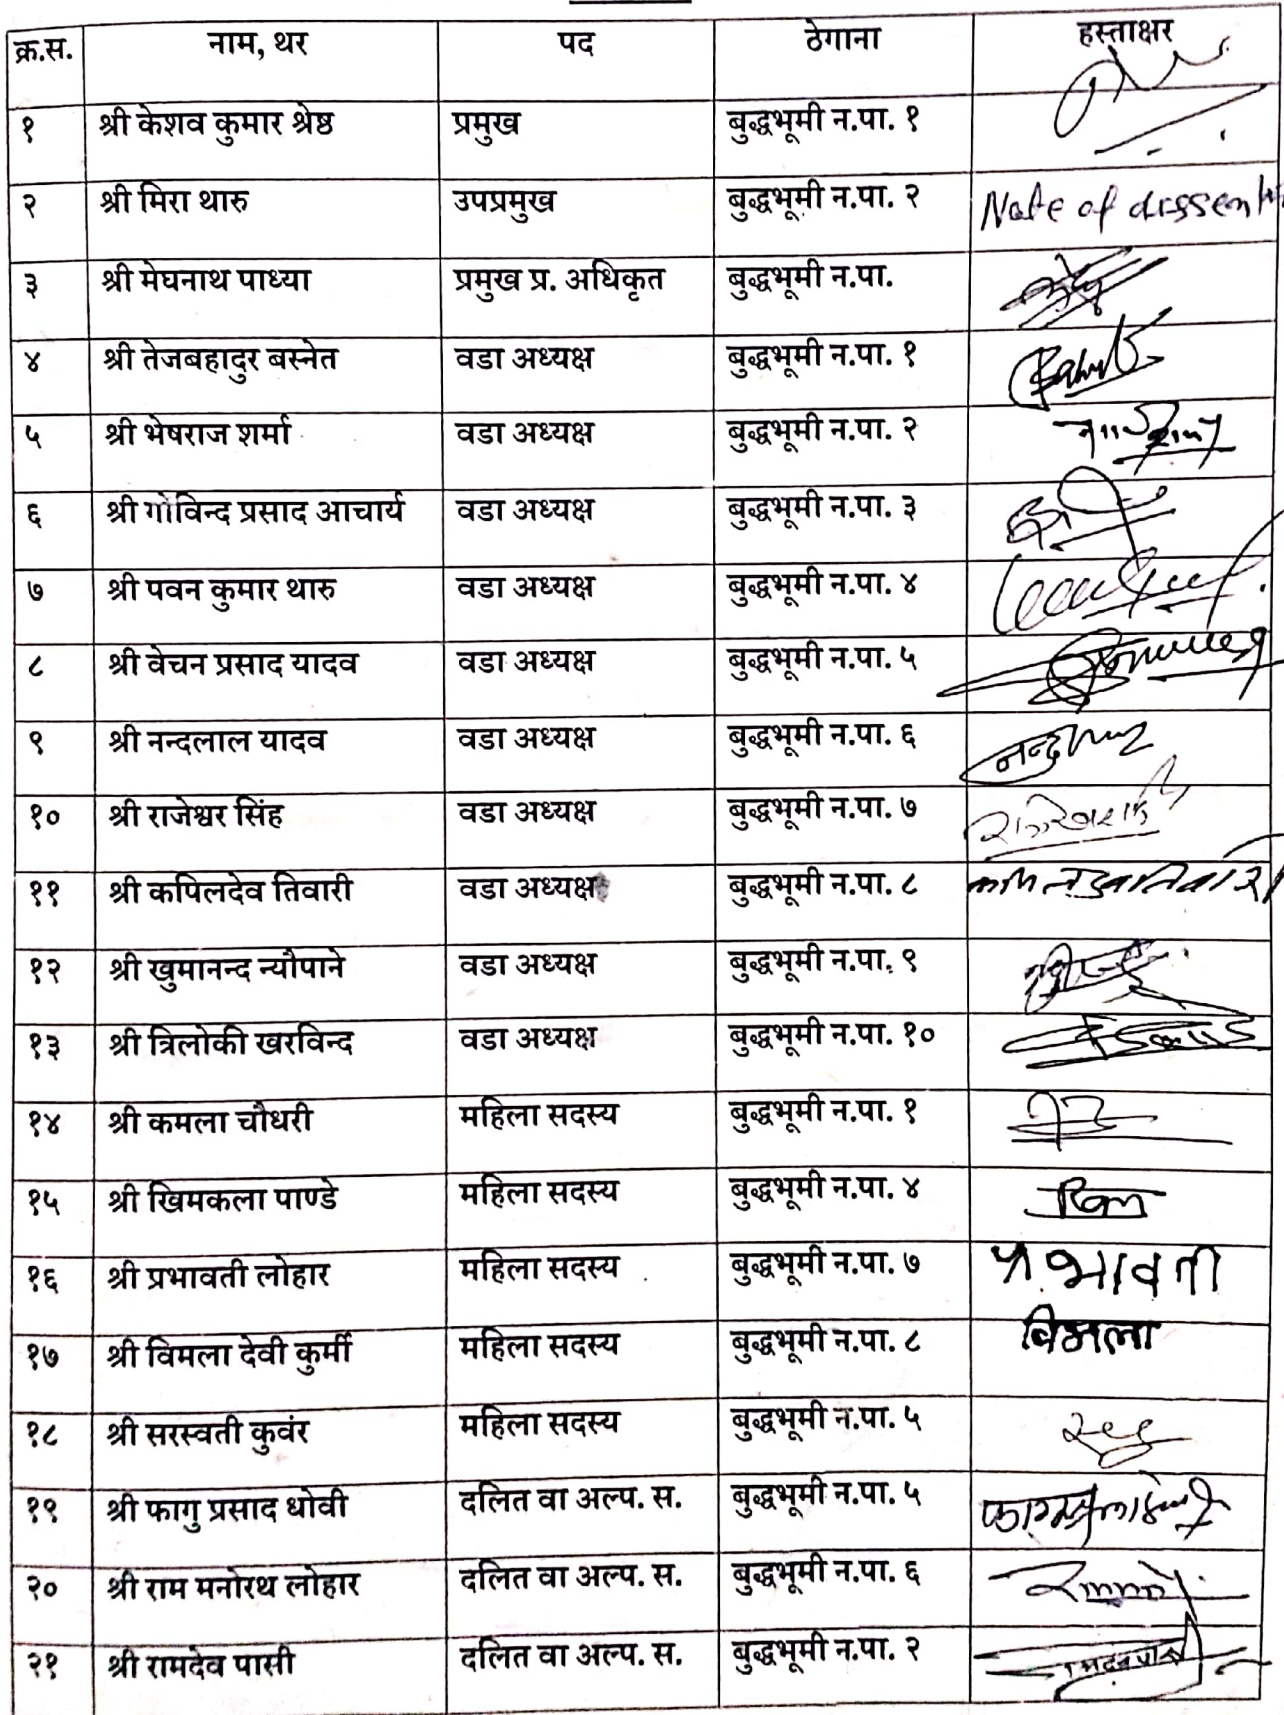 क्र.स. नाम, थर पद ठेगाना हस्ताक्षर
१ श्री केशव कुमार श्रेष्ठ प्रमुख बुद्धभूमी न.पा. १
२ श्री मिरा थारु उपप्रमुख बुद्धभूमी न.पा. २ Note of dissent
३ श्री मेघनाथ पाध्या प्रमुख प्र. अधिकृत बुद्धभूमी न.पा.
४ श्री तेजबहादुर बस्नेत वडा अध्यक्ष बुद्धभूमी न.पा. १
५ श्री भेषराज शर्मा वडा अध्यक्ष बुद्धभूमी न.पा. २
६ श्री गोविन्द प्रसाद आचार्य वडा अध्यक्ष बुद्धभूमी न.पा. ३
७ श्री पवन कुमार थारु वडा अध्यक्ष बुद्धभूमी न.पा. ४
८ श्री वेचन प्रसाद यादव वडा अध्यक्ष बुद्धभूमी न.पा. ५
९ श्री नन्दलाल यादव वडा अध्यक्ष बुद्धभूमी न.पा. ६
१० श्री राजेश्वर सिंह वडा अध्यक्ष बुद्धभूमी न.पा. ७
११ श्री कपिलदेव तिवारी वडा अध्यक्ष बुद्धभूमी न.पा. ८
१२ श्री खुमानन्द न्यौपाने वडा अध्यक्ष बुद्धभूमी न.पा. ९
१३ श्री त्रिलोकी खरविन्द वडा अध्यक्ष बुद्धभूमी न.पा. १०
१४ श्री कमला चौधरी महिला सदस्य बुद्धभूमी न.पा. १
१५ श्री खिमकला पाण्डे महिला सदस्य बुद्धभूमी न.पा. ४
१६ श्री प्रभावती लोहार महिला सदस्य बुद्धभूमी न.पा. ७ प्रभावती
१७ श्री विमला देवी कुर्मी महिला सदस्य बुद्धभूमी न.पा. ८ विमला
१८ श्री सरस्वती कुवंर महिला सदस्य बुद्धभूमी न.पा. ५
१९ श्री फागु प्रसाद धोवी दलित वा अल्प. स. बुद्धभूमी न.पा. ५
२० श्री राम मनोरथ लोहार दलित वा अल्प. स. बुद्धभूमी न.पा. ६
२१ श्री रामदेव पासी दलित वा अल्प. स. बुद्धभूमी न.पा. २